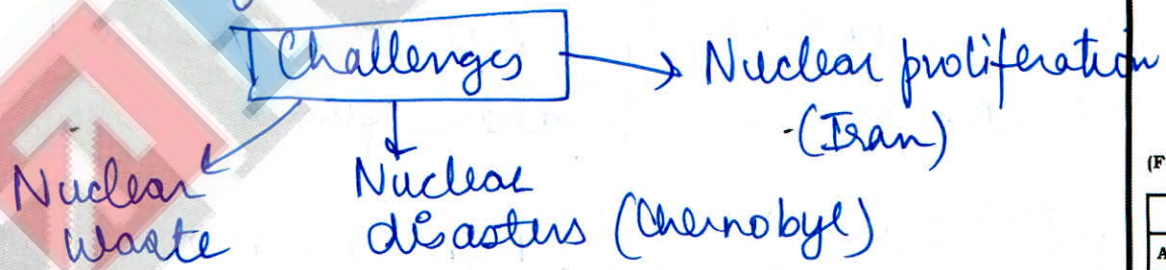 Challenges
Nuclear proliferation
(Iran)
Nuclear
Waste
Nuclear
disasters (Chernobyl)
(F
A